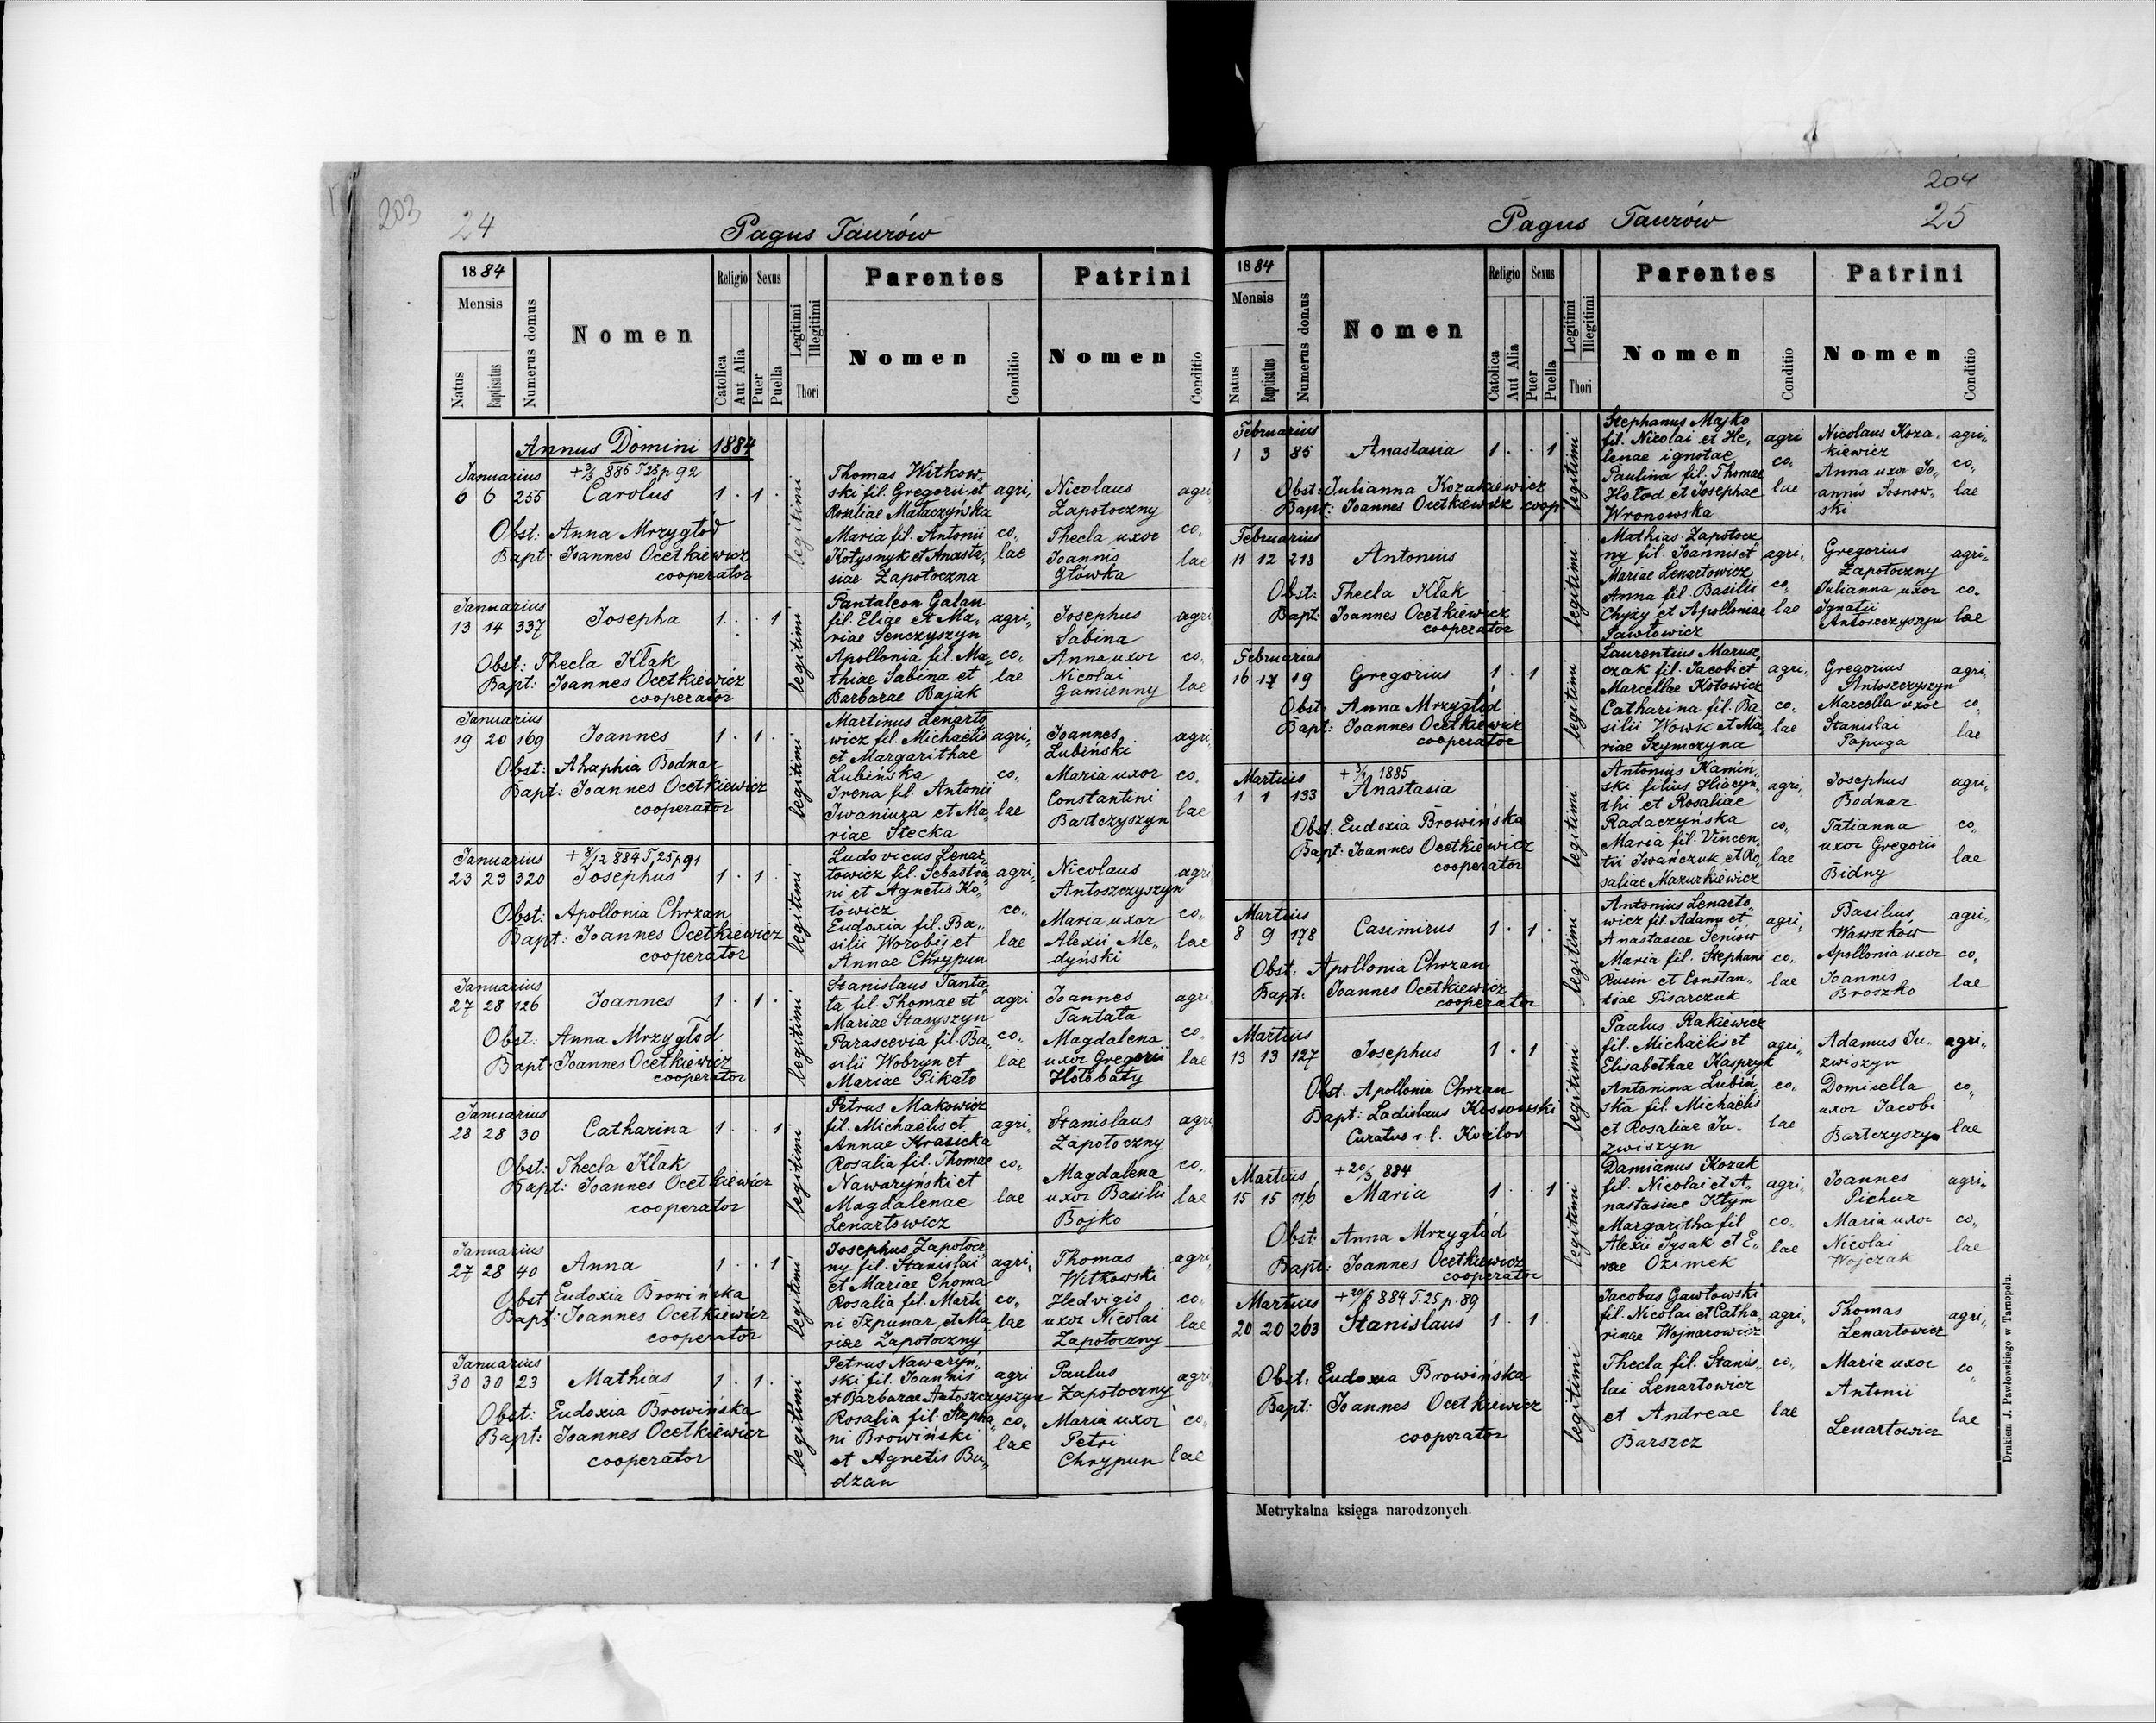 203
24
Pagus Taurów
1884
Mensis
Natus
Baptisatus
Numerus domus
Nomen
Religio
Catolica
Aut Alia
Sexus
Puer
Puella
Legitimi
Illegitimi
Thori
Parentes
Nomen
Conditio
Patrini
Nomen
Conditio
Annus Domini 1884
Januarius
6 6 255 Carolus 1 . 1 .
Obst: Anna Mrzygłod
Bapt: Joannes Ocetkiewicz
cooperator
legitimi
Thomas Witkow-
ski fil. Gregorii et
Rosaliae Mataczyńska
Maria fil. Antonii
Kotysnyk et Anasta-
siae Zapotoczna
agri-
co-
lae
Nicolaus
Zapotoczny
Thecla uxor
Joannis
Główka
agri
co-
lae
Januarius
13 14 337 Josepha 1 . . 1
Obst: Thecla Kłak
Bapt: Joannes Ocetkiewicz
cooperator
legitimi
Pantaleon Galan
fil. Eliae et Ma-
riae Senczyszyn
Apollonia fil. Ma-
thiae Sabina et
Barbarae Bajak
agri-
co-
lae
Josephus
Sabina
Anna uxor
Nicolai
Gamienny
agri
co-
lae
Januarius
19 20 169 Joannes 1 . 1 .
Obst: Ahaphia Bodnar
Bapt: Joannes Ocetkiewicz
cooperator
legitimi
Martinus Lenarto
wicz fil. Michaëlis
et Margarithae
Lubińska
Irena fil. Antonii
Iwaniura et Ma-
riae Stecka
agri-
co-
lae
Joannes
Lubiński
Maria uxor
Constantini
Bartczyszyn
agri-
co-
lae
Januarius
+ 8/12 884 T. 25 p 91
23 23 320 Josephus 1 . 1 .
Obst: Apollonia Chrzan
Bapt: Joannes Ocetkiewicz
cooperator
legitimi
Ludovicus Lenar-
towicz fil. Sebastia-
ni et Agnetis Ko-
towicz
Eudoxia fil. Ba-
silii Worobij et
Annae Chrypun
agri-
co-
lae
Nicolaus
Antoszczyszyn
Maria uxor
Alexii Me-
dyński
agri
co-
lae
Januarius
27 28 126 Joannes 1 . 1 .
Obst: Anna Mrzygłod
Bapt: Joannes Ocetkiewicz
cooperator
legitimi
Stanislaus Tanta-
ta fil. Thomae et
Mariae Stasyszyn
Parascevia fil. Ba-
silii Wobryn et
Mariae Pikato
agri
co-
lae
Joannes
Tantata
Magdalena
uxor Gregorii
Hołobaty
agri
co-
lae
Januarius
28 28 30 Catharina 1 . . 1
Obst: Thecla Kłak
Bapt: Joannes Ocetkiewicz
cooperator
legitimi
Petrus Makowicz
fil. Michaëlis et
Annae Krasicka
Rosalia fil. Thomae
Nawaryński et
Magdalenae
Lenartowicz
agri-
co-
lae
Stanislaus
Zapotoczny
Magdalena
uxor Basilii
Bojko
agri
co-
lae
Januarius
27 28 40 Anna 1 . . 1
Obst Eudoxia Browińska
Bapt: Joannes Ocetkiewicz
cooperator
legitimi
Josephus Zapotocz-
ny fil. Stanislai
et Mariae Choma
Rosalia fil. Marti
ni Szpunar et Ma-
riae Zapotoczny
agri-
co-
lae
Thomas
Witkowski
Hedvigis
uxor Nicolai
Zapotoczny
agri-
co-
lae
Januarius
30 30 23 Mathias 1 . 1 .
Obst: Eudoxia Browińska
Bapt: Joannes Ocetkiewicz
cooperator
legitimi
Petrus Nawaryń-
ski fil. Joannis
et Barbarae Antoszczyszyn
Rosalia fil. Stepha-
ni Browiński
et Agnetis Bu-
dzan
agri
co-
lae
Paulus
Zapotoczny
Maria uxor
Petri
Chrypun
agri
co-
lae
204
25
Pagus Taurów
1884
Mensis
Natus
Baptisatus
Numerus domus
Nomen
Religio
Catolica
Aut Alia
Sexus
Puer
Puella
Legitimi
Illegitimi
Thori
Parentes
Nomen
Conditio
Patrini
Nomen
Conditio
Februarius
1 3 85 Anastasia 1 . . 1
Obst: Julianna Kozakiewicz
Bapt: Joannes Ocetkiewicz coop.
legitimi
Stephanus Majko
fil. Nicolai et He-
lenae ignotae
Paulina fil. Thomae
Hołod et Josephae
Wronowska
agri
co-
lae
Nicolaus Koza-
kiewicz
Anna uxor Jo-
annis Sosnow-
ski
agri-
co-
lae
Februarius
11 12 218 Antonius
Obst: Thecla Kłak
Bapt: Joannes Ocetkiewicz
cooperator
legitimi
Mathias Zapotocz
ny fil. Joannis et
Mariae Lenartowicz
Anna fil. Basilii
Chyży et Apolloniae
Pawłowicz
agri-
co-
lae
Gregorius
Zapotoczny
Julianna uxor
Ignatii
Antoszczyszyn
agri-
co-
lae
Februarius
16 17 19 Gregorius 1 . 1
Obst: Anna Mrzygłód
Bapt: Joannes Ocetkiewicz
cooperator
legitimi
Laurentius Marusz-
czak fil. Jacobi et
Marcellae Kotowicz
Catharina fil. Ba
silii Wowk et Ma-
riae Szymczyna
agri-
co-
lae
Gregorius
Antoszczyszyn
Marcella uxor
Stanislai
Papuga
agri-
co-
lae
Martius
1 1 133 Anastasia
Obst: Eudoxia Browińska
Bapt: Joannes Ocetkiewicz
cooperator
legitimi
Antonius Kamiń-
ski filius Hiacyn-
thi et Rosaliae
Radaczyńska
Maria fil. Vincen-
tii Iwańczuk et Ro-
saliae Mazurkiewicz
agri-
co-
lae
Josephus
Bodnar
Tatianna
uxor Gregorii
Bidny
agri-
co-
lae
Martius
8 9 178 Casimirus 1 . 1 .
Obst: Apollonia Chrzan
Bapt: Joannes Ocetkiewicz
cooperator
legitimi
Antonius Lenarto-
wicz fil. Adami et
Anastasiae Seniów
Maria fil. Stephani
Rusin et Constan-
tiae Pisarczuk
agri-
co-
lae
Basilius
Wawszków
Apollonia uxor
Joannis
Broszko
agri-
co-
lae
Martius
13 13 127 Josephus 1 . 1
Obst. Apollonia Chrzan
Bapt: Ladislaus Kossowski
Curatus r. l. Kozlov
legitimi
Paulus Rakiewicz
fil. Michaëlis et
Elisabethae Kaspryk
Antonina Lubiń-
ska fil. Michaëlis
et Rosaliae Ju-
zwiszyn
agri-
co-
lae
Adamus Ju-
zwiszyn
Domicella
uxor Jacobi
Bartczyszyn
agri-
co-
lae
Martius
+ 20/3 884
15 15 116 Maria 1 . . 1
Obst: Anna Mrzygłód
Bapt: Joannes Ocetkiewicz
cooperator
legitimi
Damianus Kozak
fil. Nicolai et A-
nastasiae Kłym
Margaritha fil
Alexii Sysak et E-
vae Ozimek
agri-
co-
lae
Joannes
Pichur
Maria uxor
Nicolai
Wojczak
agri-
co-
lae
Martius
884 T. 25 p. 89
20 20 263 Stanislaus 1 . 1
Obst. Eudoxia Browińska
Bapt: Joannes Ocetkiewicz
cooperator
legitimi
Jacobus Gawłowski
fil. Nicolai et Catha-
rinae Wojnarowicz
Thecla fil. Stanis-
lai Lenartowicz
et Andreae
Barszcz
agri-
co-
lae
Thomas
Lenartowicz
Maria uxor
Antonii
Lenartowicz
agri-
co
lae
Metrykalna księga narodzonych.
Drukiem J. Pawłowskiego w Tarnopolu.